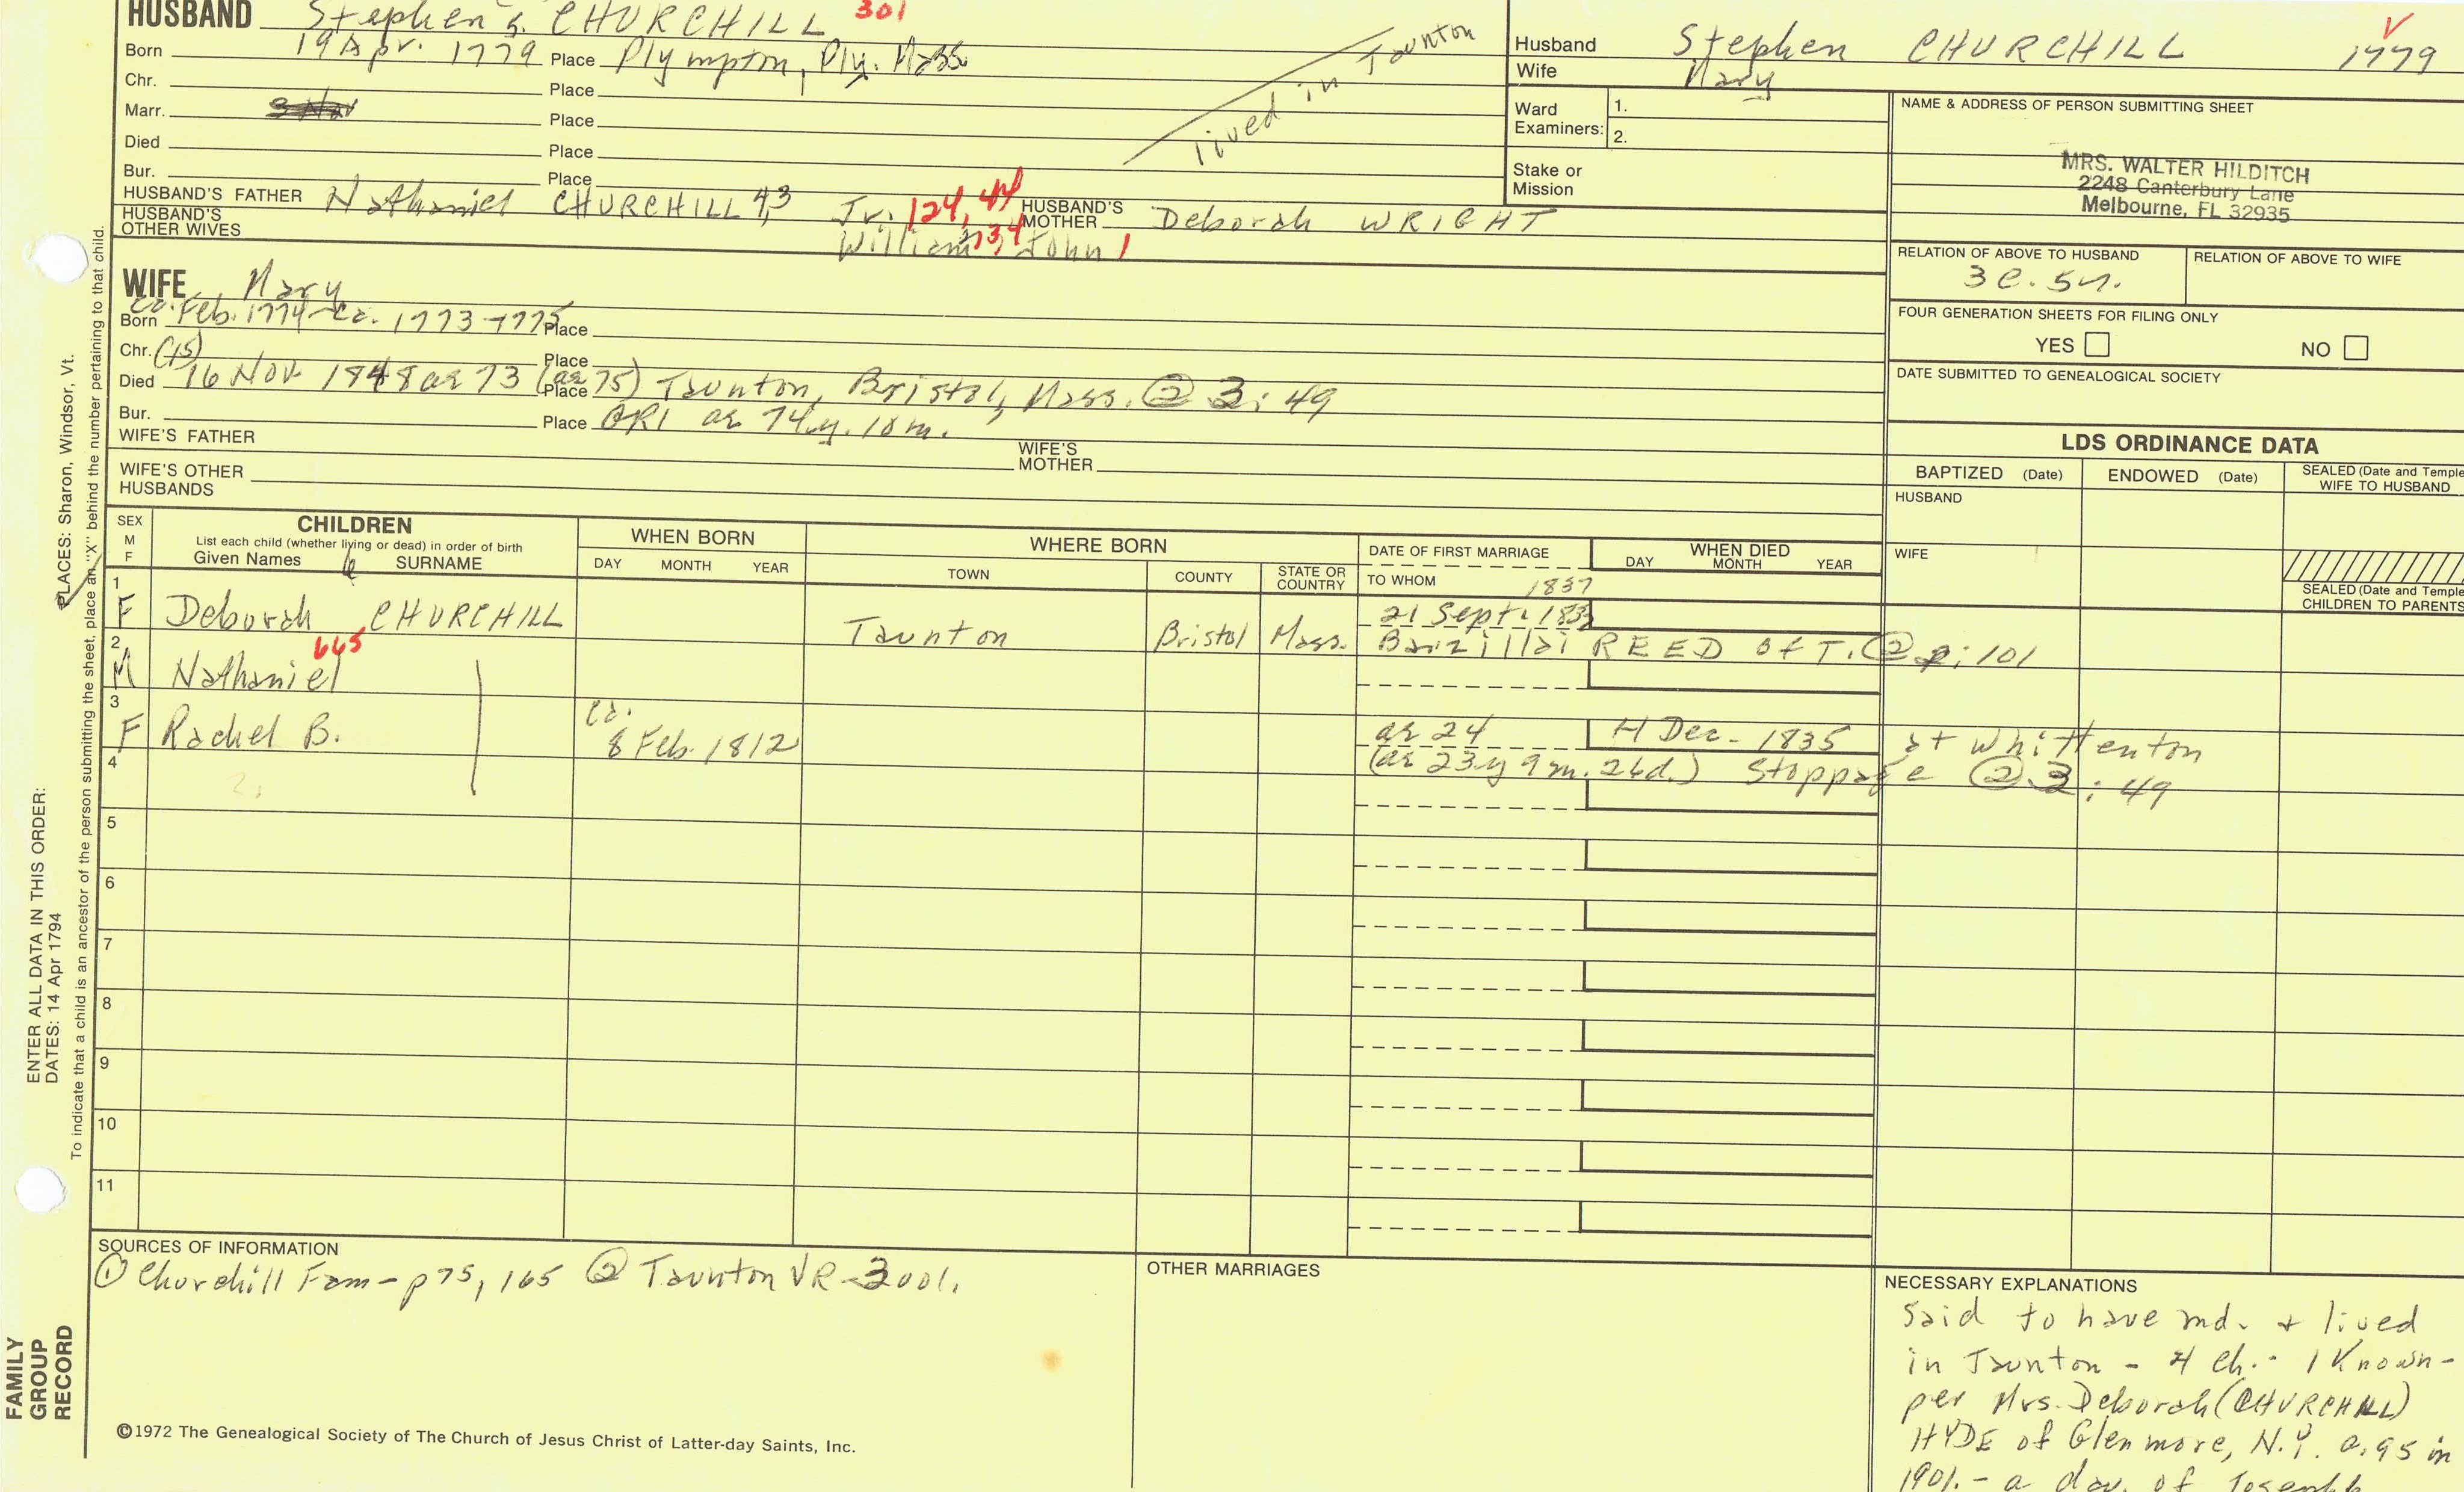 HUSBAND Stephen S. CHURCHILL 301
Born 19 Apr. 1779 Place Plympton, Ply. Mass
Chr. Place
Marr. Place
Died Place
Bur. Place
lived in Taunton
HUSBAND'S FATHER Nathaniel CHURCHILL 4,3 Jr. 124, 44 HUSBAND'S MOTHER Deborah WRIGHT
HUSBAND'S OTHER WIVES William 134 John 1
Husband Stephen CHURCHILL 1779
Wife Mary
Ward Examiners: 1.
2.
Stake or Mission
NAME & ADDRESS OF PERSON SUBMITTING SHEET
MRS. WALTER HILDITCH
2248 Canterbury Lane
Melbourne, FL 32935
RELATION OF ABOVE TO HUSBAND RELATION OF ABOVE TO WIFE
3c. 5r.
FOUR GENERATION SHEETS FOR FILING ONLY
YES NO
DATE SUBMITTED TO GENEALOGICAL SOCIETY
WIFE Mary
Born ca. Feb. 1774 ca. 1773-1775 Place
Chr. (15) Place
Died 16 Nov. 1848 ae 73 (ae 75) Place Taunton, Bristol, Mass. ② 3: 49
Bur. Place GR1 ae 74y. 10m.
WIFE'S FATHER WIFE'S MOTHER
WIFE'S OTHER HUSBANDS
LDS ORDINANCE DATA
BAPTIZED (Date) ENDOWED (Date) SEALED (Date and Temple
WIFE TO HUSBAND
HUSBAND
WIFE
SEALED (Date and Temple
CHILDREN TO PARENTS
SEX M F
CHILDREN
List each child (whether living or dead) in order of birth
Given Names SURNAME
WHEN BORN
DAY MONTH YEAR
WHERE BORN
TOWN COUNTY STATE OR COUNTRY
DATE OF FIRST MARRIAGE
TO WHOM
WHEN DIED
DAY MONTH YEAR
1837
1 F Deborah CHURCHILL Taunton Bristol Mass. 21 Sept. 1833
Barzillai REED of T. ② 2: 101
2 M Nathaniel 665
3 F Rachel B. ca. 8 Feb. 1812 ae 24 4 Dec. 1835 at Whittenton
(ae 23y 9m. 26d.) Stoppage ② 3: 49
4
5
6
7
8
9
10
11
SOURCES OF INFORMATION
① Churchill Fam - p 75, 165 ② Taunton VR - 3 vol.
OTHER MARRIAGES
NECESSARY EXPLANATIONS
Said to have md. + lived
in Taunton - 4 ch. - 1 Known -
per Mrs. Deborah (CHURCHILL)
HYDE of Glenmore, N.Y. a. 95 in
1901. - a dau. of Joseph
©1972 The Genealogical Society of The Church of Jesus Christ of Latter-day Saints, Inc.
FAMILY GROUP RECORD
ENTER ALL DATA IN THIS ORDER:
DATES: 14 Apr 1794
PLACES: Sharon, Windsor, Vt.
To indicate that a child is an ancestor of the person submitting the sheet, place an "X" behind the number pertaining to that child.